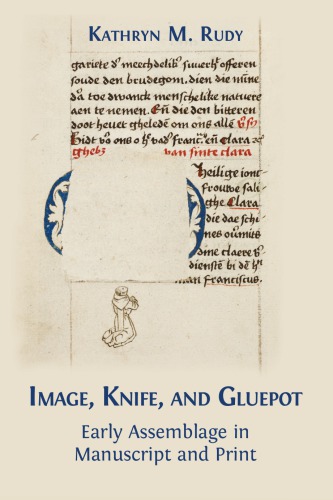 KATHRYN M. RUDY
gariete dʼ meechdelikʼ suverhʼ offeren
soude den brudegom, dien die mine
dʼa toe dwanck menschelike natuere
aen te nemen. Eñ die den bitteren
doot hevet gheledē om ons allē
Bidt vʼo ons o hʼ vadʼ francʼ. eñ clara
ghebʒ van sinte clara
Heilige ionc
frouwe sali
ghe Clara
die dae schi
nes oumits
dine claere
dienstē bi dē hʼ
man franciscus.
IMAGE, KNIFE, AND GLUEPOT
Early Assemblage in
Manuscript and Print